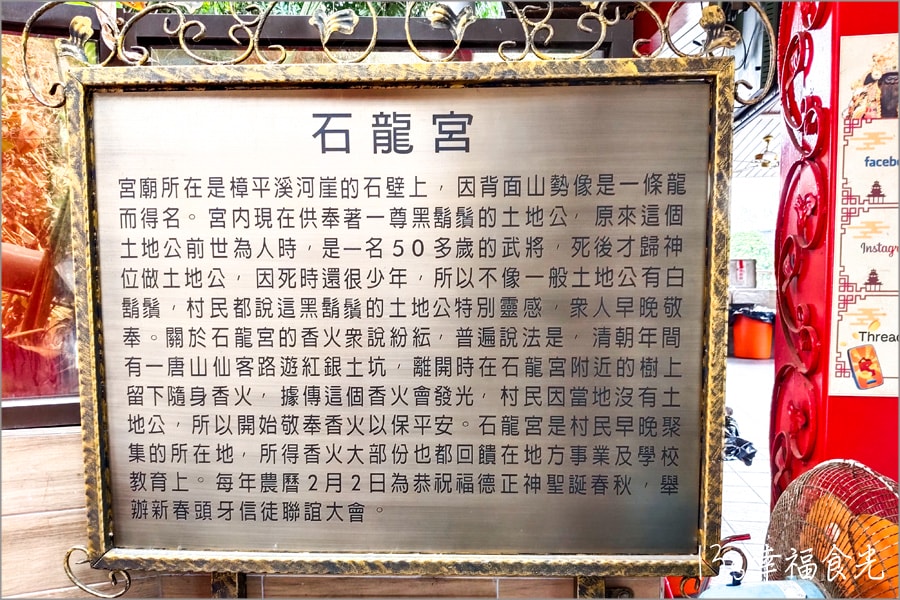 石龍宮
宮廟所在是樟平溪河崖的石壁上，因背面山勢像是一條龍
而得名。宮內現在供奉著一尊黑鬍鬚的土地公，原來這個
土地公前世為人時，是一名50多歲的武將，死後才歸神
位做土地公，因死時還很少年，所以不像一般土地公有白
鬍鬚，村民都說這黑鬍鬚的土地公特別靈感，衆人早晚敬
奉。關於石龍宮的香火衆說紛紜，普遍說法是，清朝年間
有一唐山仙客路遊紅銀土坑，離開時在石龍宮附近的樹上
留下隨身香火，據傳這個香火會發光，村民因當地沒有土
地公，所以開始敬奉香火以保平安。石龍宮是村民早晚聚
集的所在地，所得香火大部份也都回饋在地方事業及學校
教育上。每年農曆2月2日為恭祝福德正神聖誕春秋，舉
辦新春頭牙信徒聯誼大會。
faceb
Instag
Thread
幸福食光